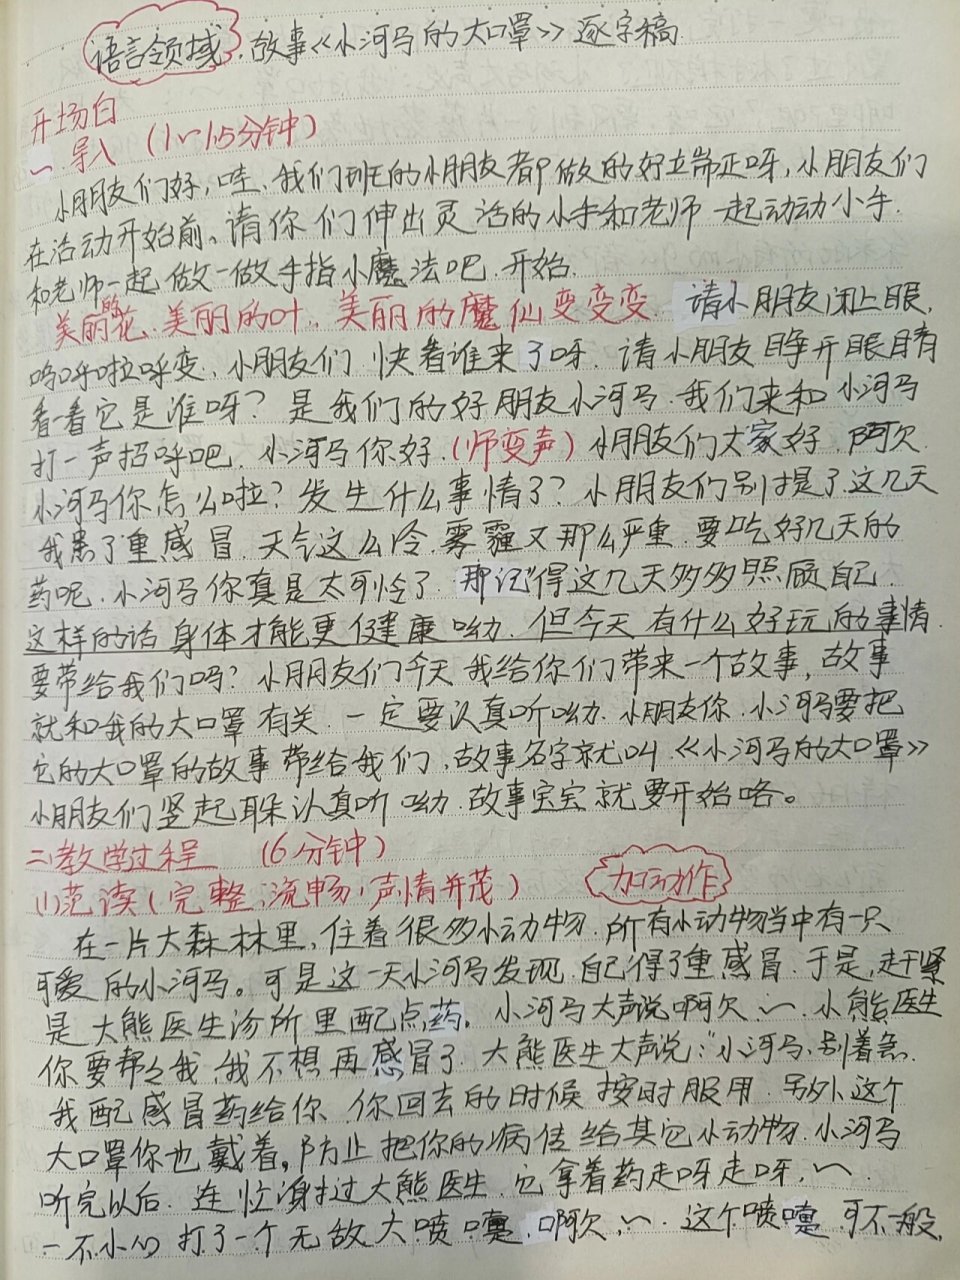 语言领域.故事《小河马的大口罩》逐字稿
开场白
一.导入(1~1.5分钟)
小朋友们好,哇、我们班的小朋友都做的好立端正呀,小朋友们
在活动开始前、请你们伸出灵活的小手和老师一起动动小手.
和老师一起做一做手指小魔法吧.开始.
美丽的花、美丽的叶、美丽的魔仙变变变.请小朋友闭上眼,
呜呼啦呼变、小朋友们快看谁来了呀.请小朋友睁开眼睛
看一看它是谁呀?是我们的好朋友小河马.我们来和小河马
打一声招呼吧.小河马你好.(师变声)小朋友们大家好.阿欠
小河马你怎么啦?发生什么事情了?小朋友们别提了这几天
我患了重感冒.天气这么冷.雾霾又那么严重.要吃好几天的
药呢.小河马你真是太可怜了.那记得这几天多多照顾自己.
这样的话身体才能更健康呦.但今天有什么好玩的事情.
要带给我们吗?小朋友们今天我给你们带来一个故事,故事
就和我的大口罩有关.一定要认真听呦.小朋友你.小河马要把
它的大口罩的故事带给我们,故事名字就叫《小河马的大口罩》
小朋友们竖起耳朵认真听呦.故事宝宝就要开始咯。
二.教学过程 (6分钟)
(1)范读(完整,流畅,声情并茂) 加动作
在一片大森林里,住着很多小动物.所有小动物当中有一只
可爱的小河马。可是这一天小河马发现自己得了重感冒.于是,赶紧
是大熊医生诊所里配点药.小河马大声说啊欠~小熊医生
你要帮帮我,我不想再感冒了.大熊医生大声说:"小河马,别着急.
我配感冒药给你.你回去的时候按时服用.另外.这个
大口罩你也戴着,防止把你的病传给其它小动物.小河马
听完以后.连忙谢过大熊医生.它拿着药走呀走呀,~
一不小心打了一个无敌大喷嚏.啊欠~.这个喷嚏可不一般,